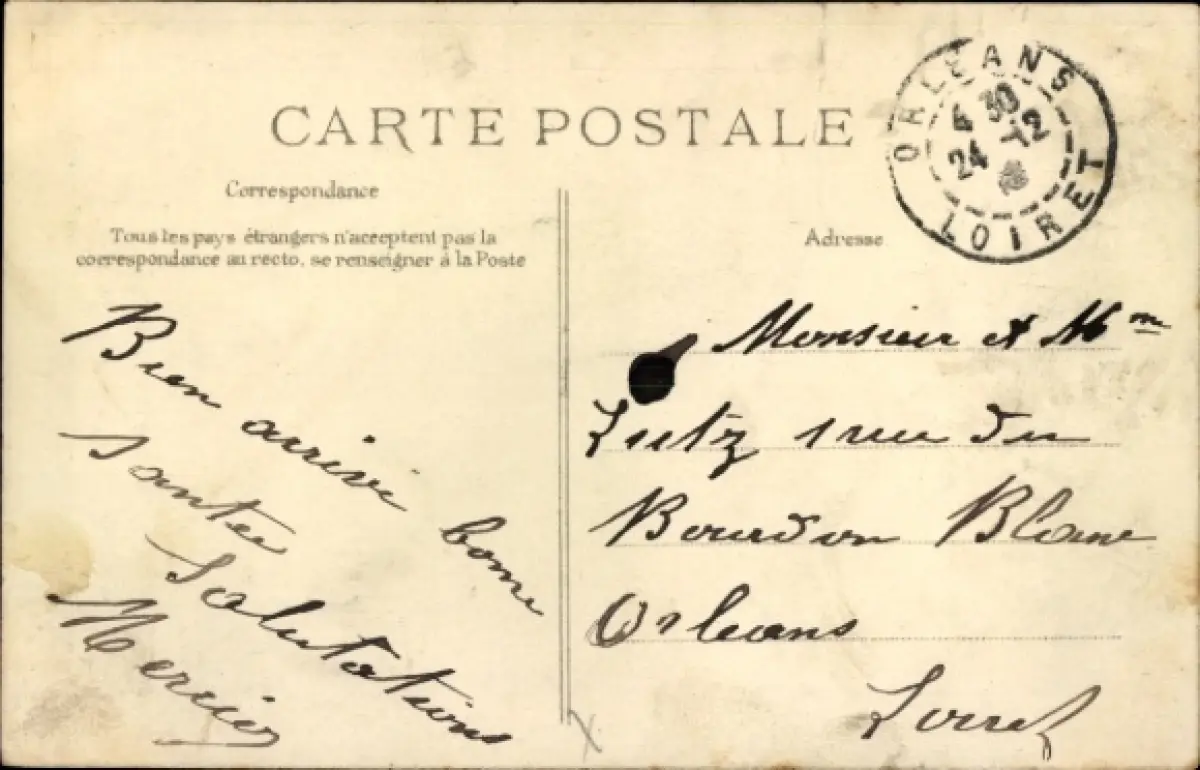 CARTE POSTALE
Correspondance
Tous les pays étrangers n'acceptent pas la
correspondance au recto, se renseigner à la Poste
Bien arrivé bonne
santée
Salutations
Mercier
ORLEANS
4 30
24 -12
LOIRET
Adresse
Monsieur et Mm
Lutz rue du
Bourdon Blanc
Orleans
Loiret